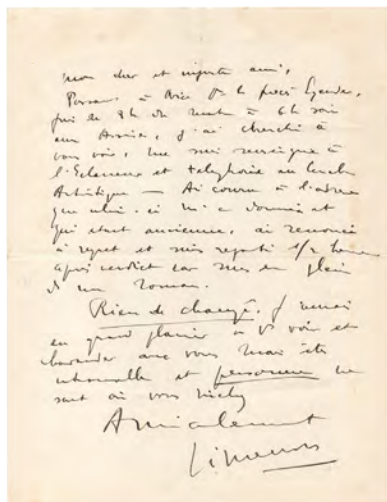 mon cher et injuste ami,
Passant à Nice pr le procès
puis de 8h du matin à 6h soir
aux Assises, j'ai cherché à
vous voir, me suis renseigné à
l'Eclaireur et téléphoné au cercle
Artistique — Ai couru à l'adresse
que celui-ci m'a donnée et
qui étant ancienne, ai renoncé
à regret et suis reparti 1/2 heure
après verdict car suis en plein
ds un roman.
Rien de changé. J'aurais
eu grand plaisir à vs voir et
bavarder avec vous mais êtes
et personne ne
sait où vous
Amicalement
Simenon